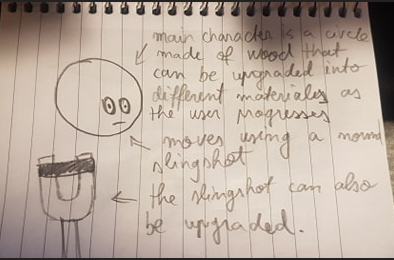 main character is a circle
made of wood that
can be upgraded into
different materials as
the user progresses
moves using a normal
slingshot
the slingshot can also
be upgraded.